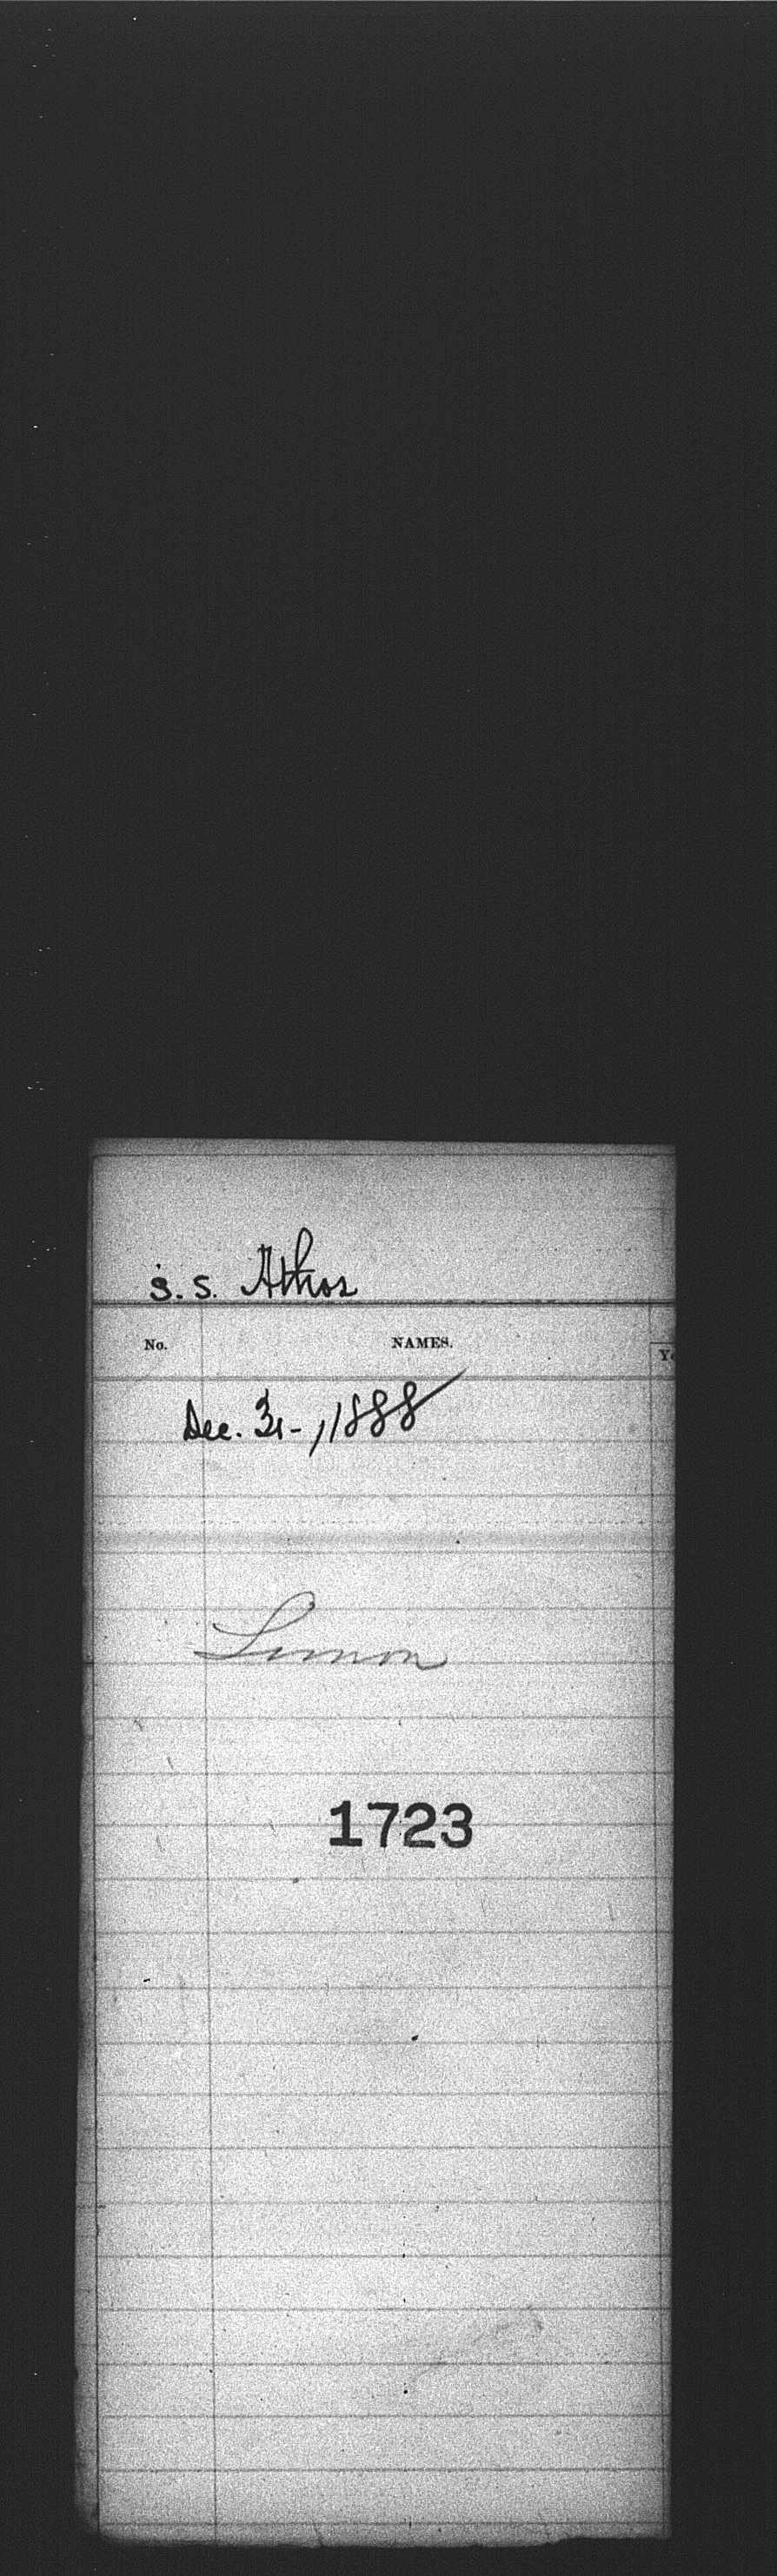 S.S. Athos
No. NAMES. Ye
Dec. 31-, 1888
Limon
1723